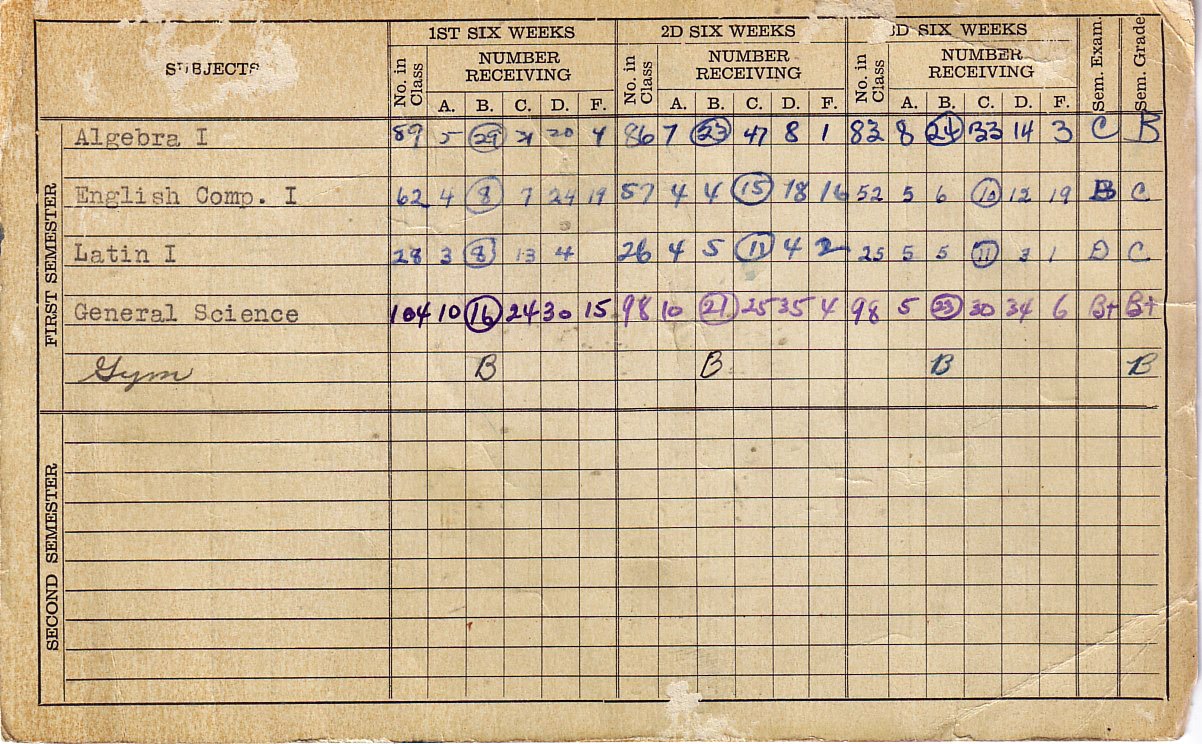 1ST SIX WEEKS 2D SIX WEEKS 3D SIX WEEKS
SUBJECTS No. in Class NUMBER RECEIVING No. in Class NUMBER RECEIVING No. in Class NUMBER RECEIVING Sem. Exam. Sem. Grade.
A. B. C. D. F. A. B. C. D. F. A. B. C. D. F.
FIRST SEMESTER
Algebra I 89 5 29 31 20 4 86 7 23 47 8 1 83 8 24 33 14 3 C B
English Comp. I 62 4 8 7 24 19 57 4 4 15 18 16 52 5 6 10 12 19 B C
Latin I 28 3 8 13 4 26 4 5 11 4 2 25 5 5 11 3 1 D C
General Science 104 10 16 24 30 15 98 10 21 25 35 4 98 5 23 30 34 6 B+ B+
Gym B B B B
SECOND SEMESTER